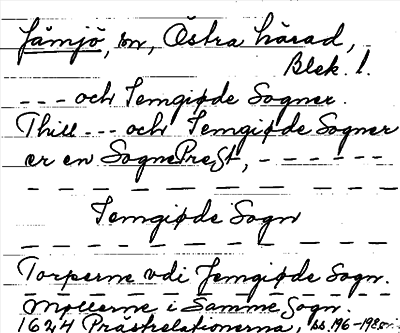 Jämjö, sn, Östra härad,
Blek. l.
--- och Jemgiøde Sogner.
Thill --- och Jemgiøde Sogner
er en SognePrest, ------
Jemgiøde Sogn
Torperne vdi Jemgiøde Sogn.
Møllerne i Samme Sogn.
1624 Prästrelationerna, ss. 196-198